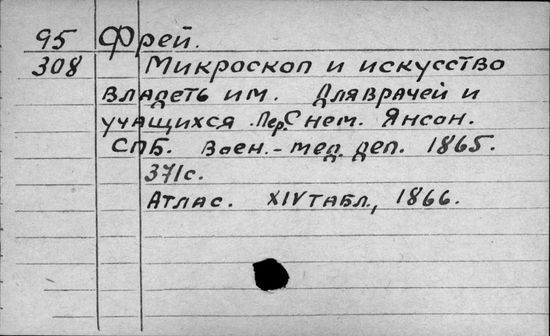 95 Фрей.
308 Микроскоп и искусство
владеть им. Для врачей и
учащихся. Пер. с нем. Янсон.
СПБ. Воен.-мед. деп. 1865.
371с.
Атлас. XIV табл., 1866.